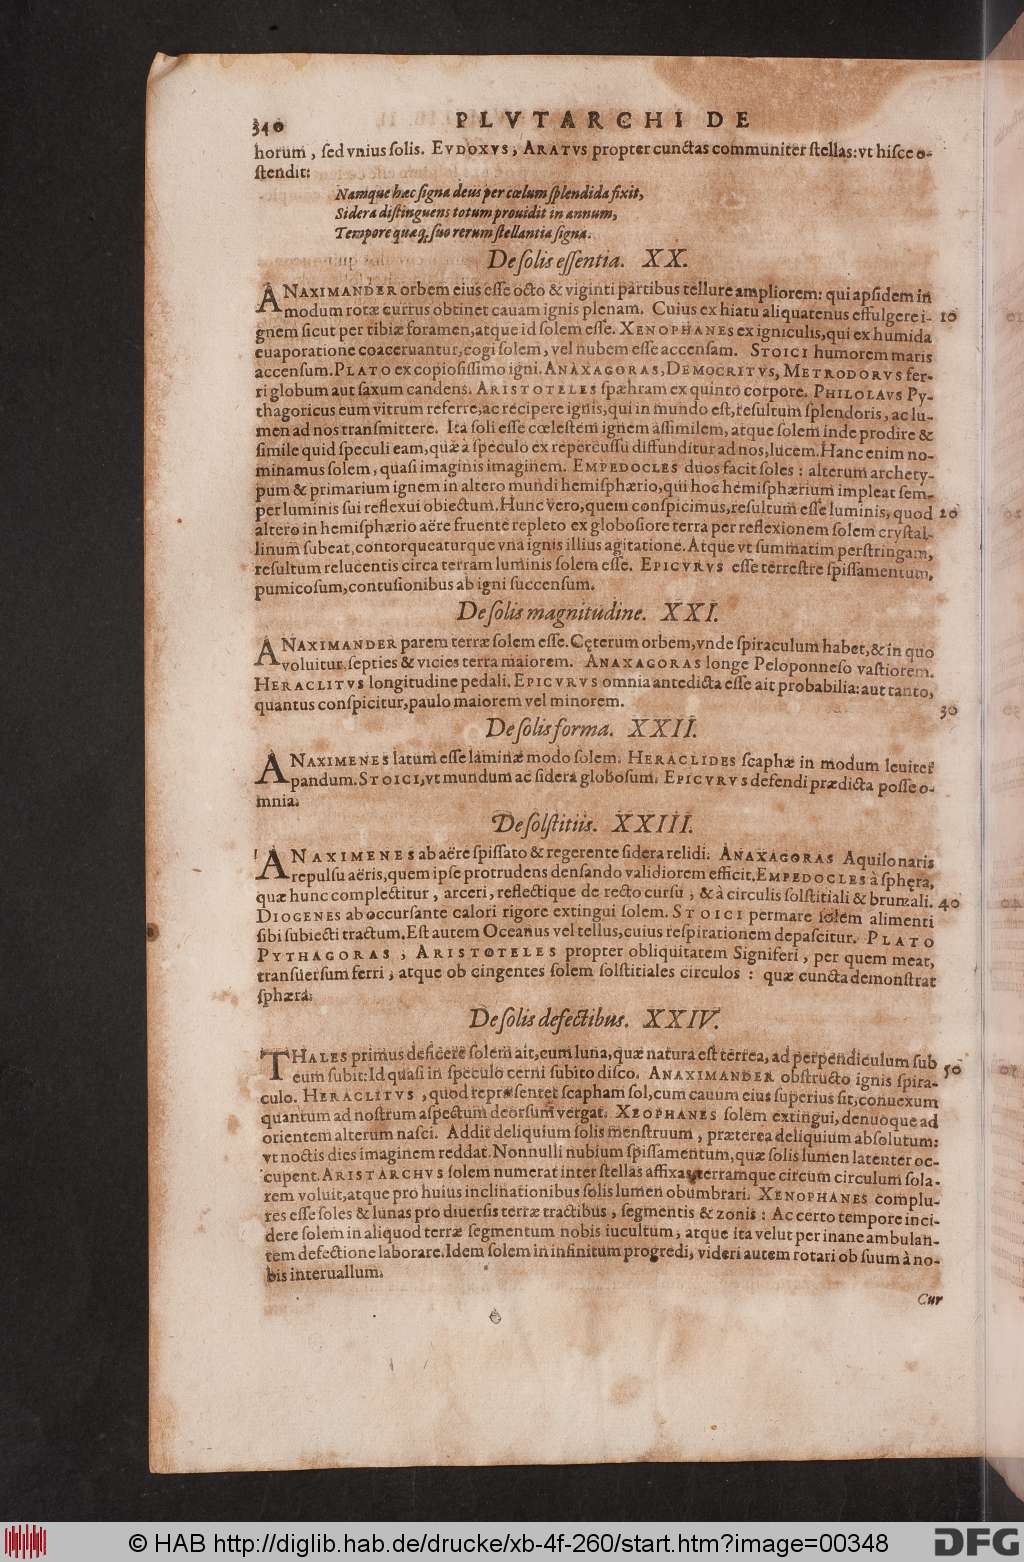 340 PLVTARCHI DE
horum, sed vnius solis. EVDOXVS, ARATVS propter cunctas communiter stellas: vt hisce o-
stendit:
Namque hæc signa deus per cœlum splendida fixit,
Sidera distinguens totum prouidit in annum,
Tempore quæq; suo rerum stellantia signa.
De solis essentia. XX.
ANAXIMANDER orbem eius esse octo & viginti partibus tellure ampliorem: qui apsidem in
modum rotæ currus obtinet cauam ignis plenam. Cuius ex hiatu aliquatenus effulgere i- 10
gnem sicut per tibiæ foramen, atque id solem esse. XENOPHANES ex igniculis, qui ex humida
euaporatione coaceruantur, cogi solem, vel nubem esse accensam. STOICI humorem maris
accensum. PLATO ex copiosissimo igni. ANAXAGORAS, DEMOCRITVS, METRODORVS fer-
ri globum aut saxum candens. ARISTOTELES spæhram ex quinto corpore. PHILOLAVS Py-
thagoricus eum vitrum referre, ac recipere ignis, qui in mundo est, resultum splendoris, ac lu-
men ad nos transmittere. Ita soli esse cœlestem ignem assimilem, atque solem inde prodire &
simile quid speculi eam, quæ à speculo ex repercussu diffunditur ad nos, lucem. Hanc enim no-
minamus solem, quasi imaginis imaginem. EMPEDOCLES duos facit soles: alterum archety-
pum & primarium ignem in altero mundi hemisphærio, qui hoc hemisphærium impleat sem-
per luminis sui reflexui obiectum. Hunc vero, quem conspicimus, resultum esse luminis, quod 20
altero in hemisphærio aëre fruente repleto ex globosiore terra per reflexionem solem crystal-
linum subeat, contorqueaturque vna ignis illius agitatione. Atque vt summatim perstringam,
resultum relucentis circa terram luminis solem esse. EPICVRVS esse terrestre spissamentum,
pumicosum, contusionibus ab igni succensum.
De solis magnitudine. XXI.
ANAXIMANDER parem terræ solem esse. Cęterum orbem, vnde spiraculum habet, & in quo
voluitur, septies & vicies terra maiorem. ANAXAGORAS longe Peloponneso vastiorem.
HERACLITVS longitudine pedali. EPICVRVS omnia antedicta esse ait probabilia: aut tanto,
quantus conspicitur, paulo maiorem vel minorem. 30
De solis forma. XXII.
ANAXIMENES latum esse laminæ modo solem. HERACLIDES scaphæ in modum leuiter
pandum. STOICI, vt mundum ac sidera globosum. EPICVRVS defendi prædicta posse o-
mnia.
De solstitiis. XXIII.
ANAXIMENES ab aëre spissato & regerente sidera relidi. ANAXAGORAS Aquilonaris
repulsu aëris, quem ipse protrudens densando validiorem efficit. EMPEDOCLES à sphęra,
quæ hunc complectitur, arceri, reflectique de recto cursu, & à circulis solstitiali & brumali. 40
DIOGENES ab occursante calori rigore extingui solem. STOICI permare solem alimenti
sibi subiecti tractum. Est autem Oceanus vel tellus, cuius respirationem depascitur. PLATO
PYTHAGORAS, ARISTOTELES propter obliquitatem Signiferi, per quem meat,
transuersum ferri, atque ob cingentes solem solstitiales circulos: quæ cuncta demonstrat
sphæra.
De solis defectibus. XXIV.
THALES primus deficere solem ait, cum luna, quæ natura est terrea, ad perpendiculum sub
eum subit: Id quasi in speculo cerni subito disco. ANAXIMANDER obstructo ignis spira- 50
culo. HERACLITVS, quod repræsentet scapham sol, cum cauum eius superius sit, conuexum
quantum ad nostrum aspectum deorsum vergat. XEOPHANES solem extingui, denuoque ad
orientem alterum nasci. Addit deliquium solis menstruum, præterea deliquium absolutum:
vt noctis dies imaginem reddat. Nonnulli nubium spissamentum, quæ solis lumen latenter oc-
cupent. ARISTARCHVS solem numerat inter stellas affixas, terramque circum circulum sola-
rem voluit, atque pro huius inclinationibus solis lumen obumbrari. XENOPHANES complu-
res esse soles & lunas pro diuersis terræ tractibus, segmentis & zonis: Ac certo tempore inci-
dere solem in aliquod terræ segmentum nobis iucultum, atque ita velut per inane ambulan-
tem defectione laborare. Idem solem in infinitum progredi, videri autem rotari ob suum à no-
bis interuallum.
Cur
© HAB http://diglib.hab.de/drucke/xb-4f-260/start.htm?image=00348 DFG